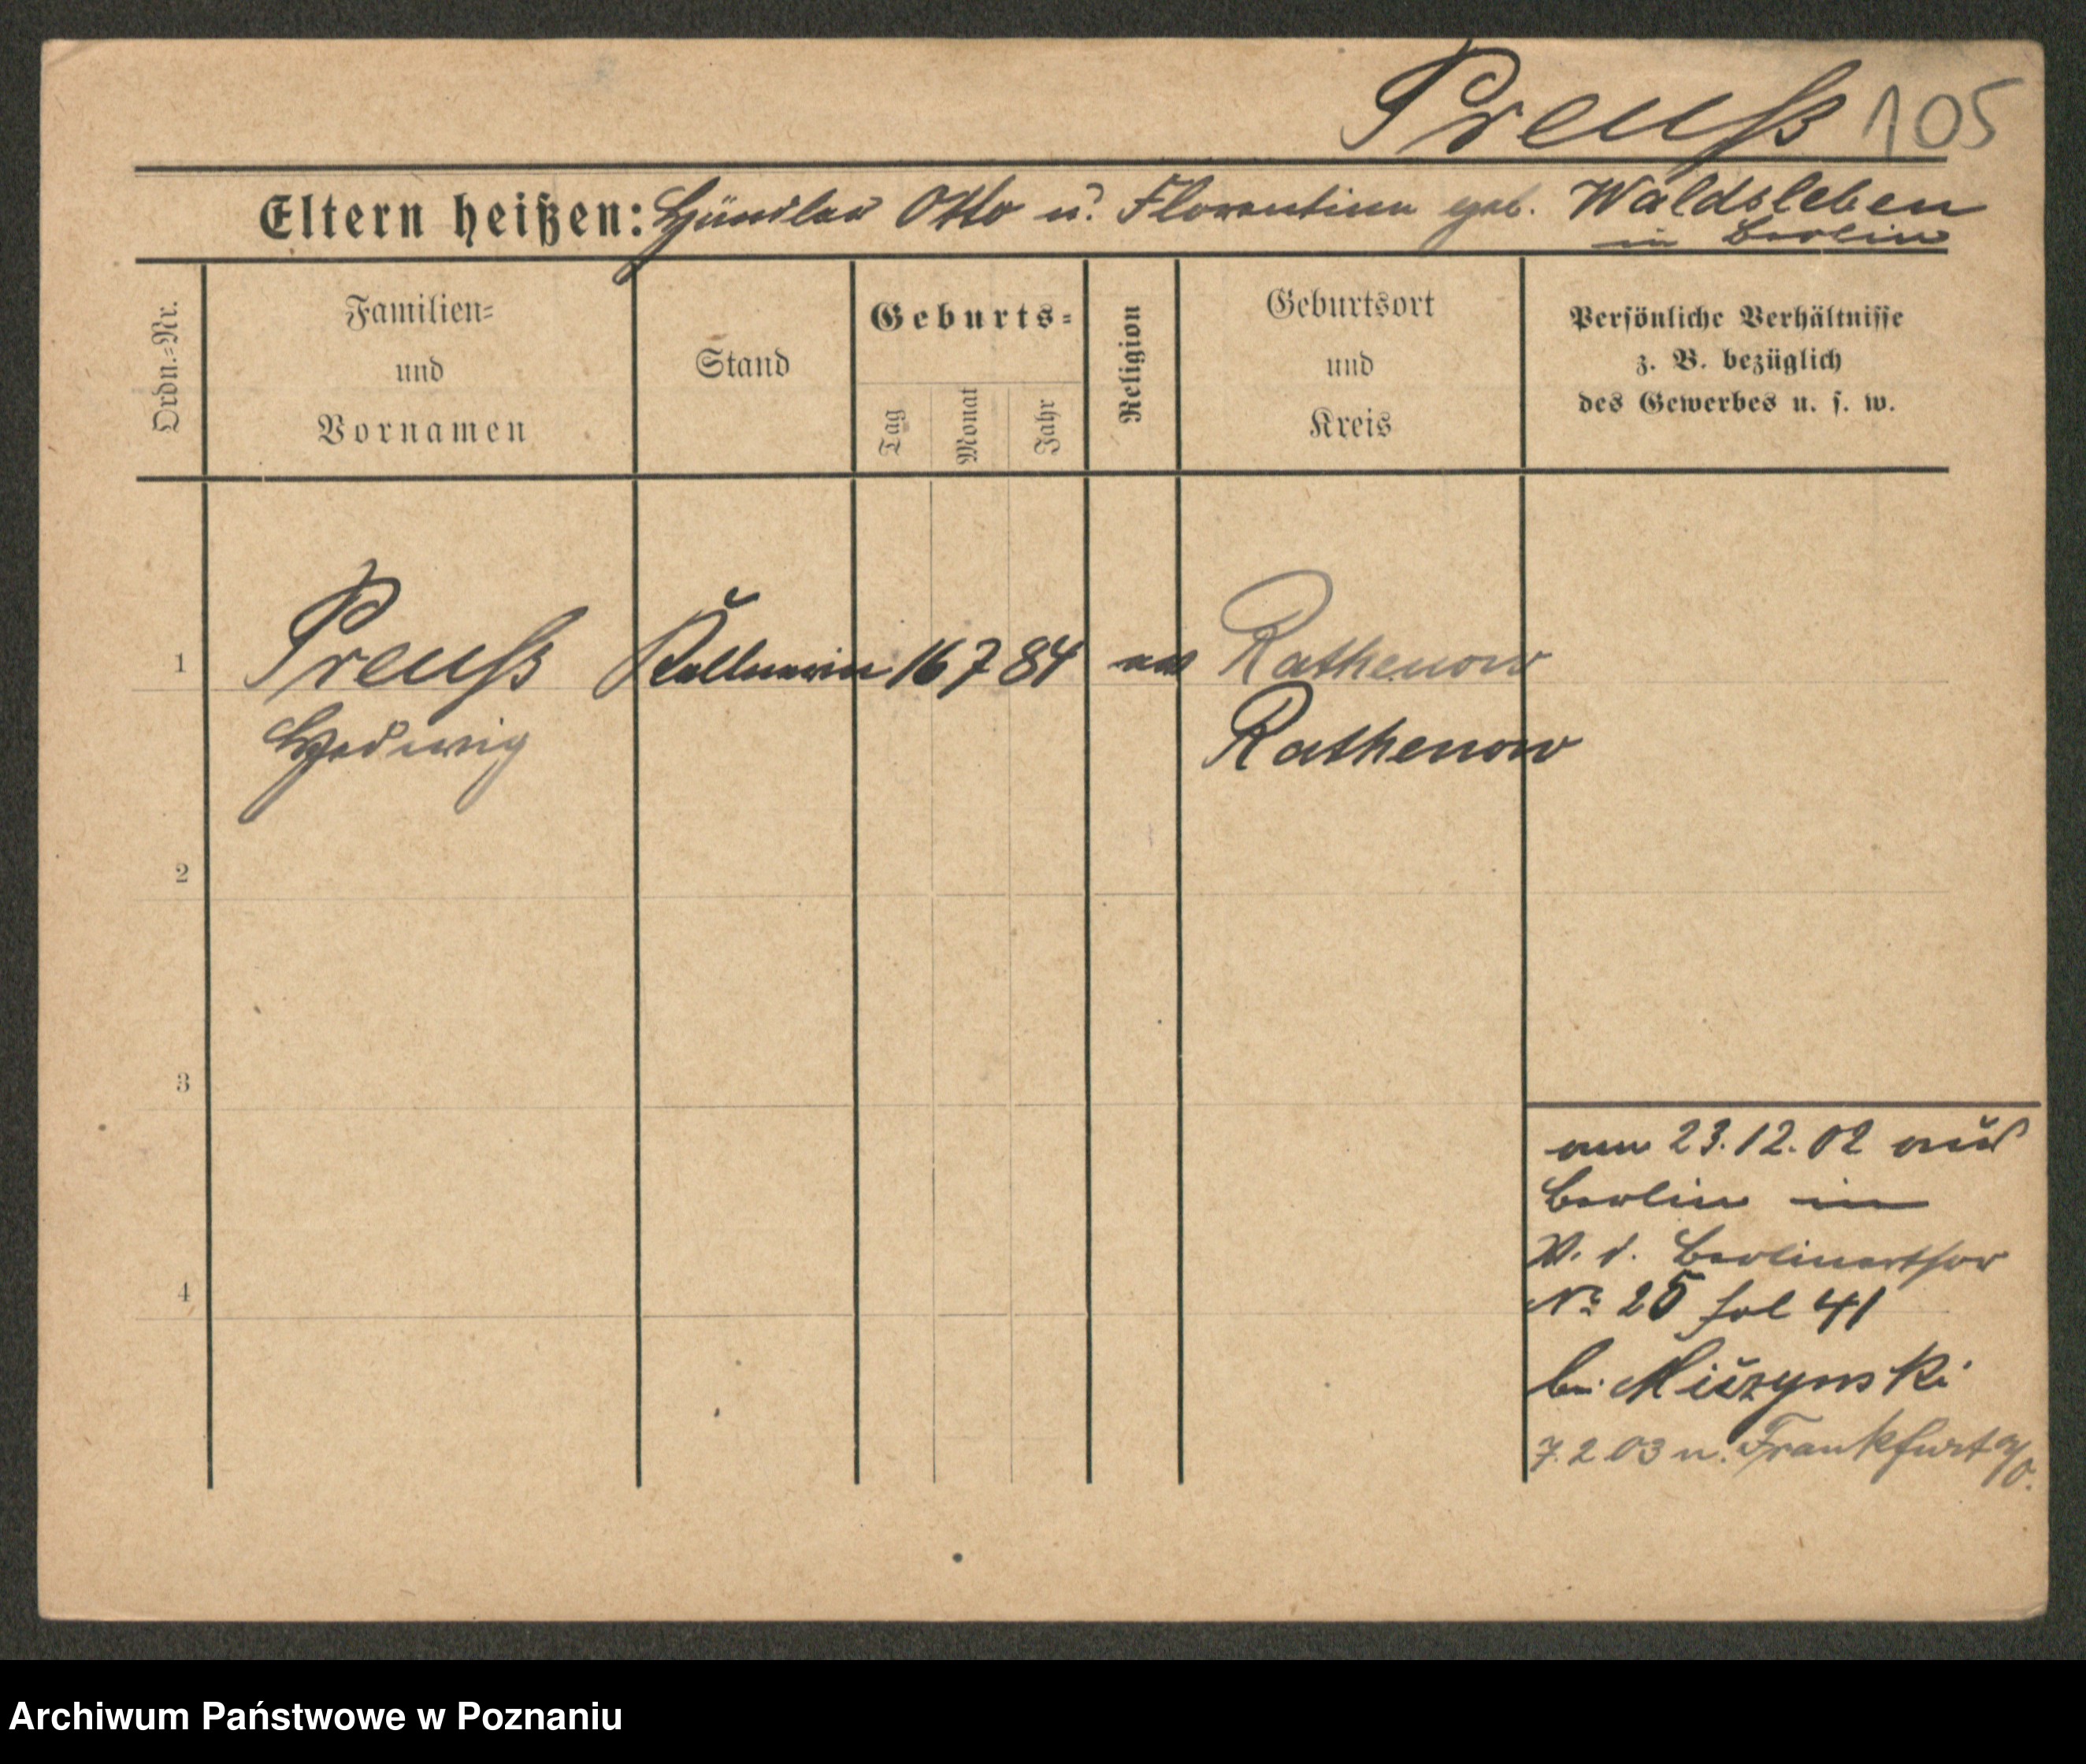 Preuß 105
Eltern heißen: Händler Otto u. Florentine geb. Waldsleben
in Berlin
Ordn.=Nr.
Familien=
und
Vornamen
Stand
Geburts=
Tag
Monat
Jahr
Religion
Geburtsort
und
Kreis
Persönliche Verhältnisse
z. B. bezüglich
des Gewerbes u. s. w.
1 Preuß Kellnerin 16 7 84 ev Rathenow
Hedwig Rathenow
2
3
4
am 23.12.02 aus
Berlin in
W. d. Berlinerthor
No 25 fol 41
bei
7.2.03 n. Frankfurt a/O.
Archiwum Państwowe w Poznaniu